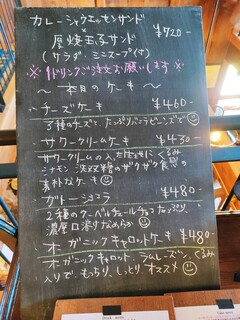 カレーシャウエッセンサンド
×
厚焼玉子サンド ¥720-
(サラダ、ミニスープ付)
※1ドリンク注文お願いします※
〜本日のケーキ〜
チーズケーキ ¥460-
3種のチーズで、たっぷりバニラビーンズで
サワークリームケーキ ¥430-
サワークリームの入った生地に くるみ
シナモン 洗双糖のザクザク食感の
素朴なケーキ
ガトーショコラ ¥480-
2種のクーベルチュールチョコたっぷり、
濃厚口溶けなめらか
オーガニックキャロットケーキ ¥480-
オーガニックキャロット、ラムレーズン、くるみ
入りで、もっちり、しっとり、オススメ